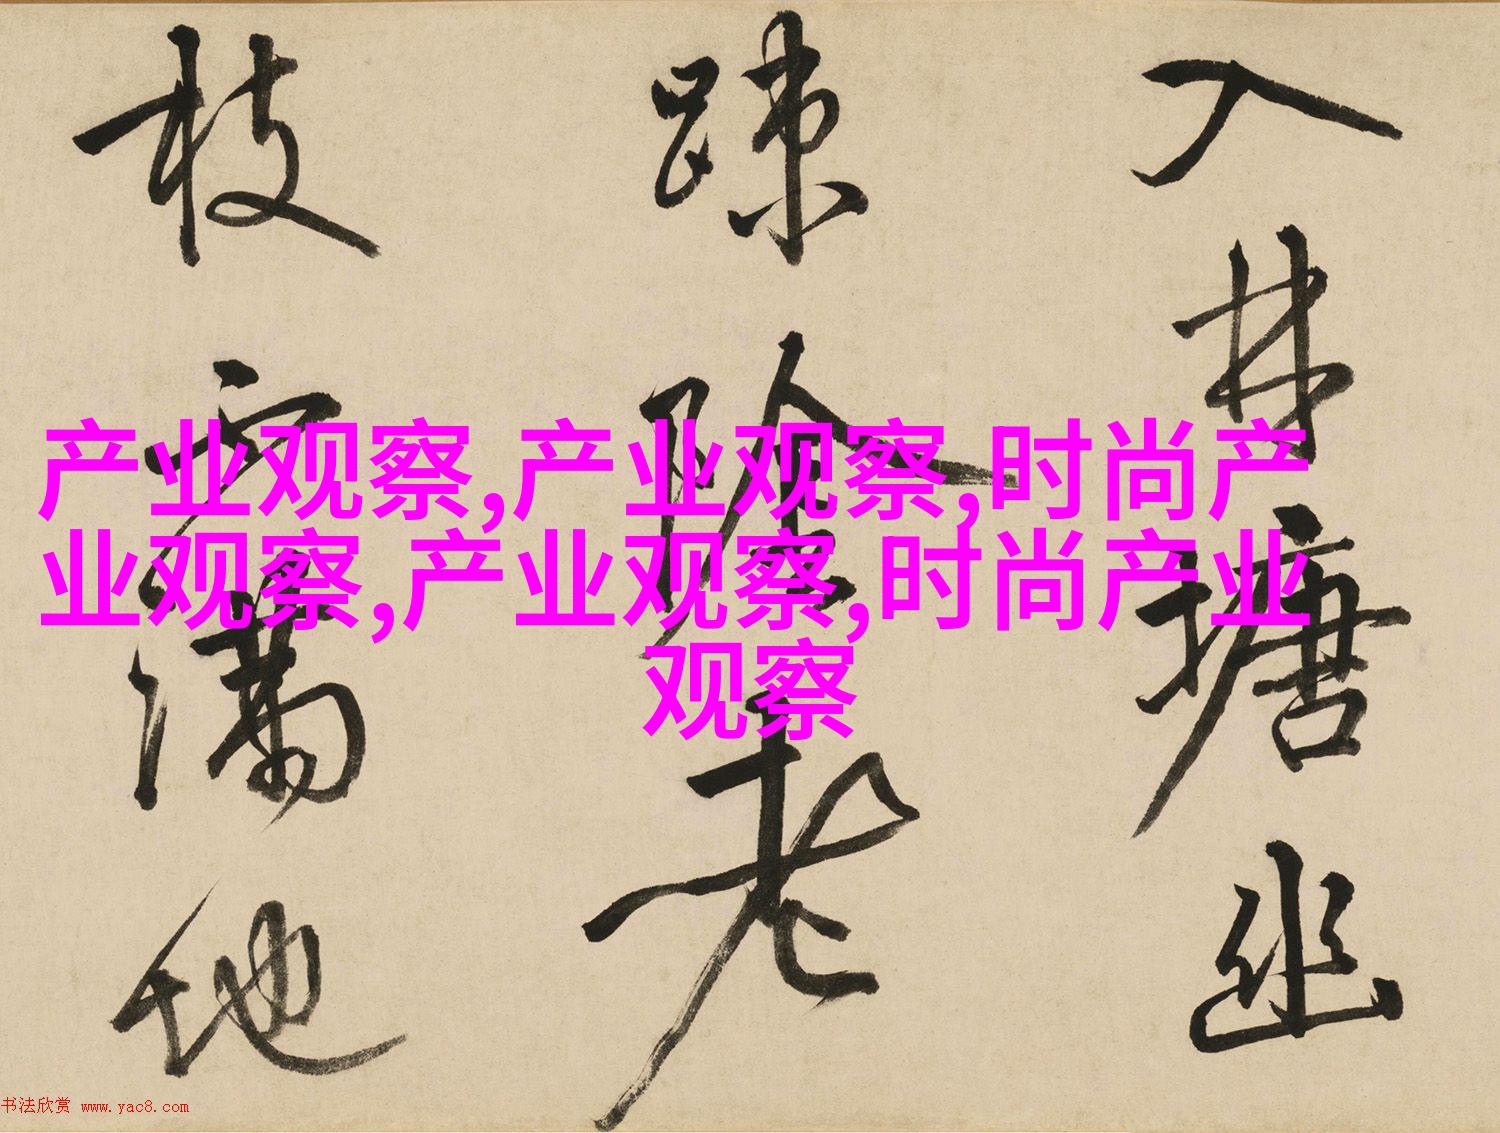 产业观察,产业观察,时尚产
业观察,产业观察,时尚产业
观察
入林塘幽
踈陰老
枝满地
书法欣赏 www.yac8.com